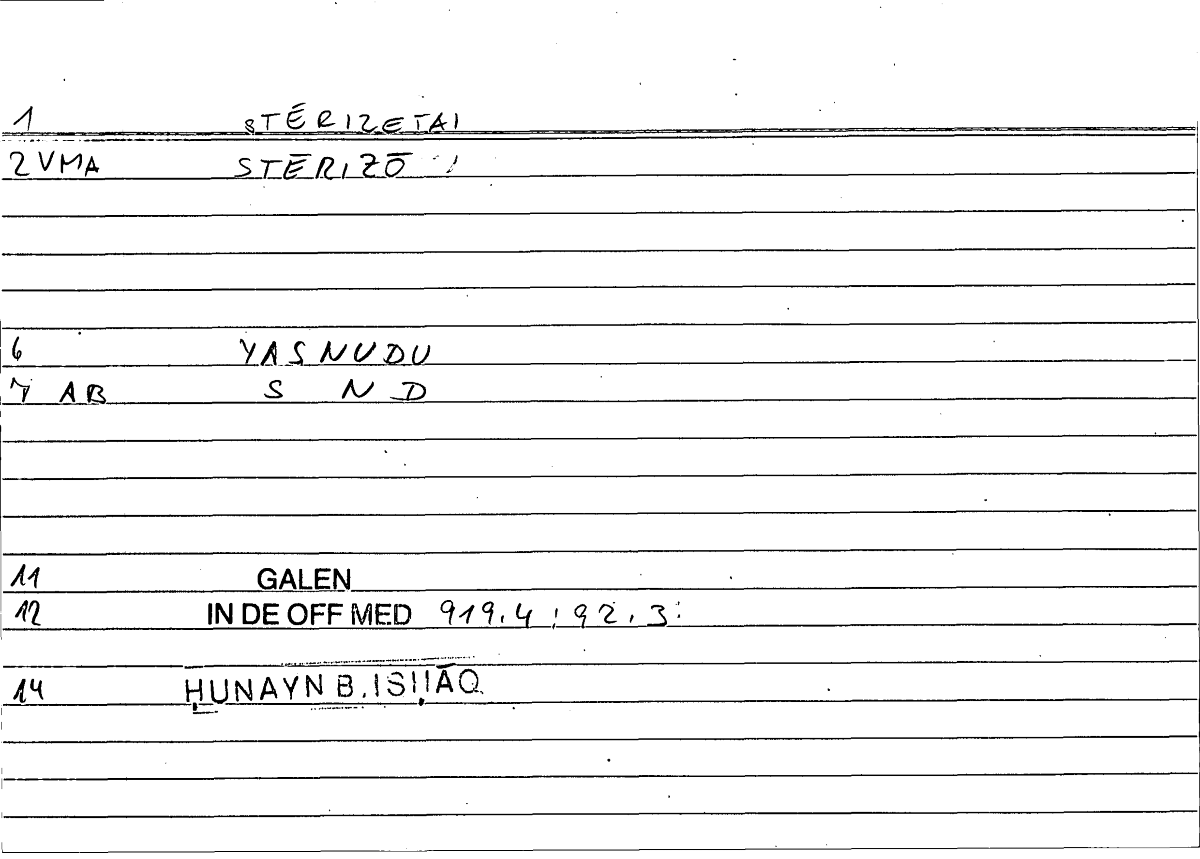 1 STĒRIZETAI
2 VMA STĒRIZŌ
6 YASNUDU
7 AB S N D
11 GALEN
12 IN DE OFF MED 919.4 ; 92.3
14 ḤUNAYN B. ISḤĀQ